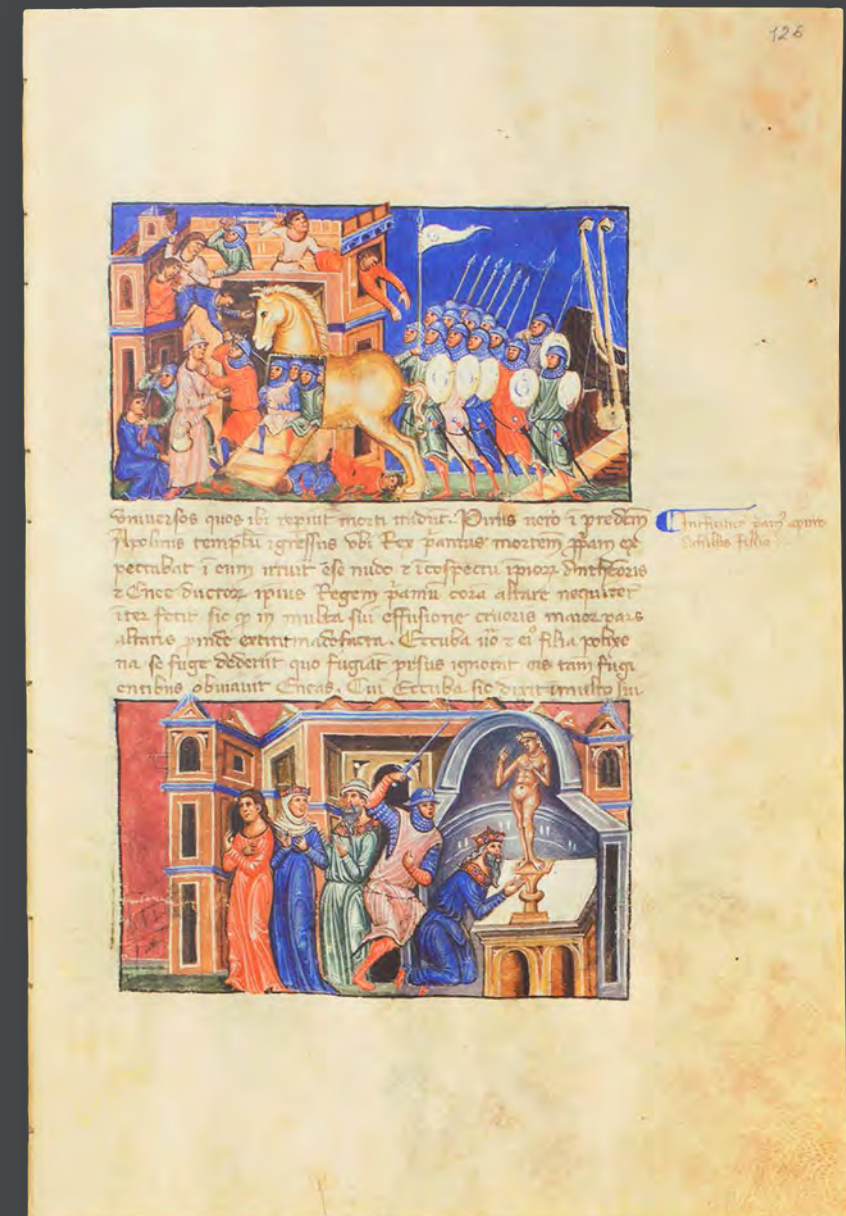 126
universos quos ibi repiut morti tradut. Pirus uero i predcm
Apolinis templu igressus vbi Rex pamus mortem ppam ex
pectabat i eum irruit ese nudo z i cospectu ipior Anthenoris
z Enee ductor ipius Regem pamu cora altare nequiter
iter fecit sic q in multa sui effusione cruoris maior pars
altaris pinde extitit madefacta. Eccuba uo z ei filia polixe
na se fuge dederut quo fugiat prsus ignorat eis tam fugi
entibus obuiauit Eneas. Cui Eccuba sic dixit
pami apirro
Achillis filio